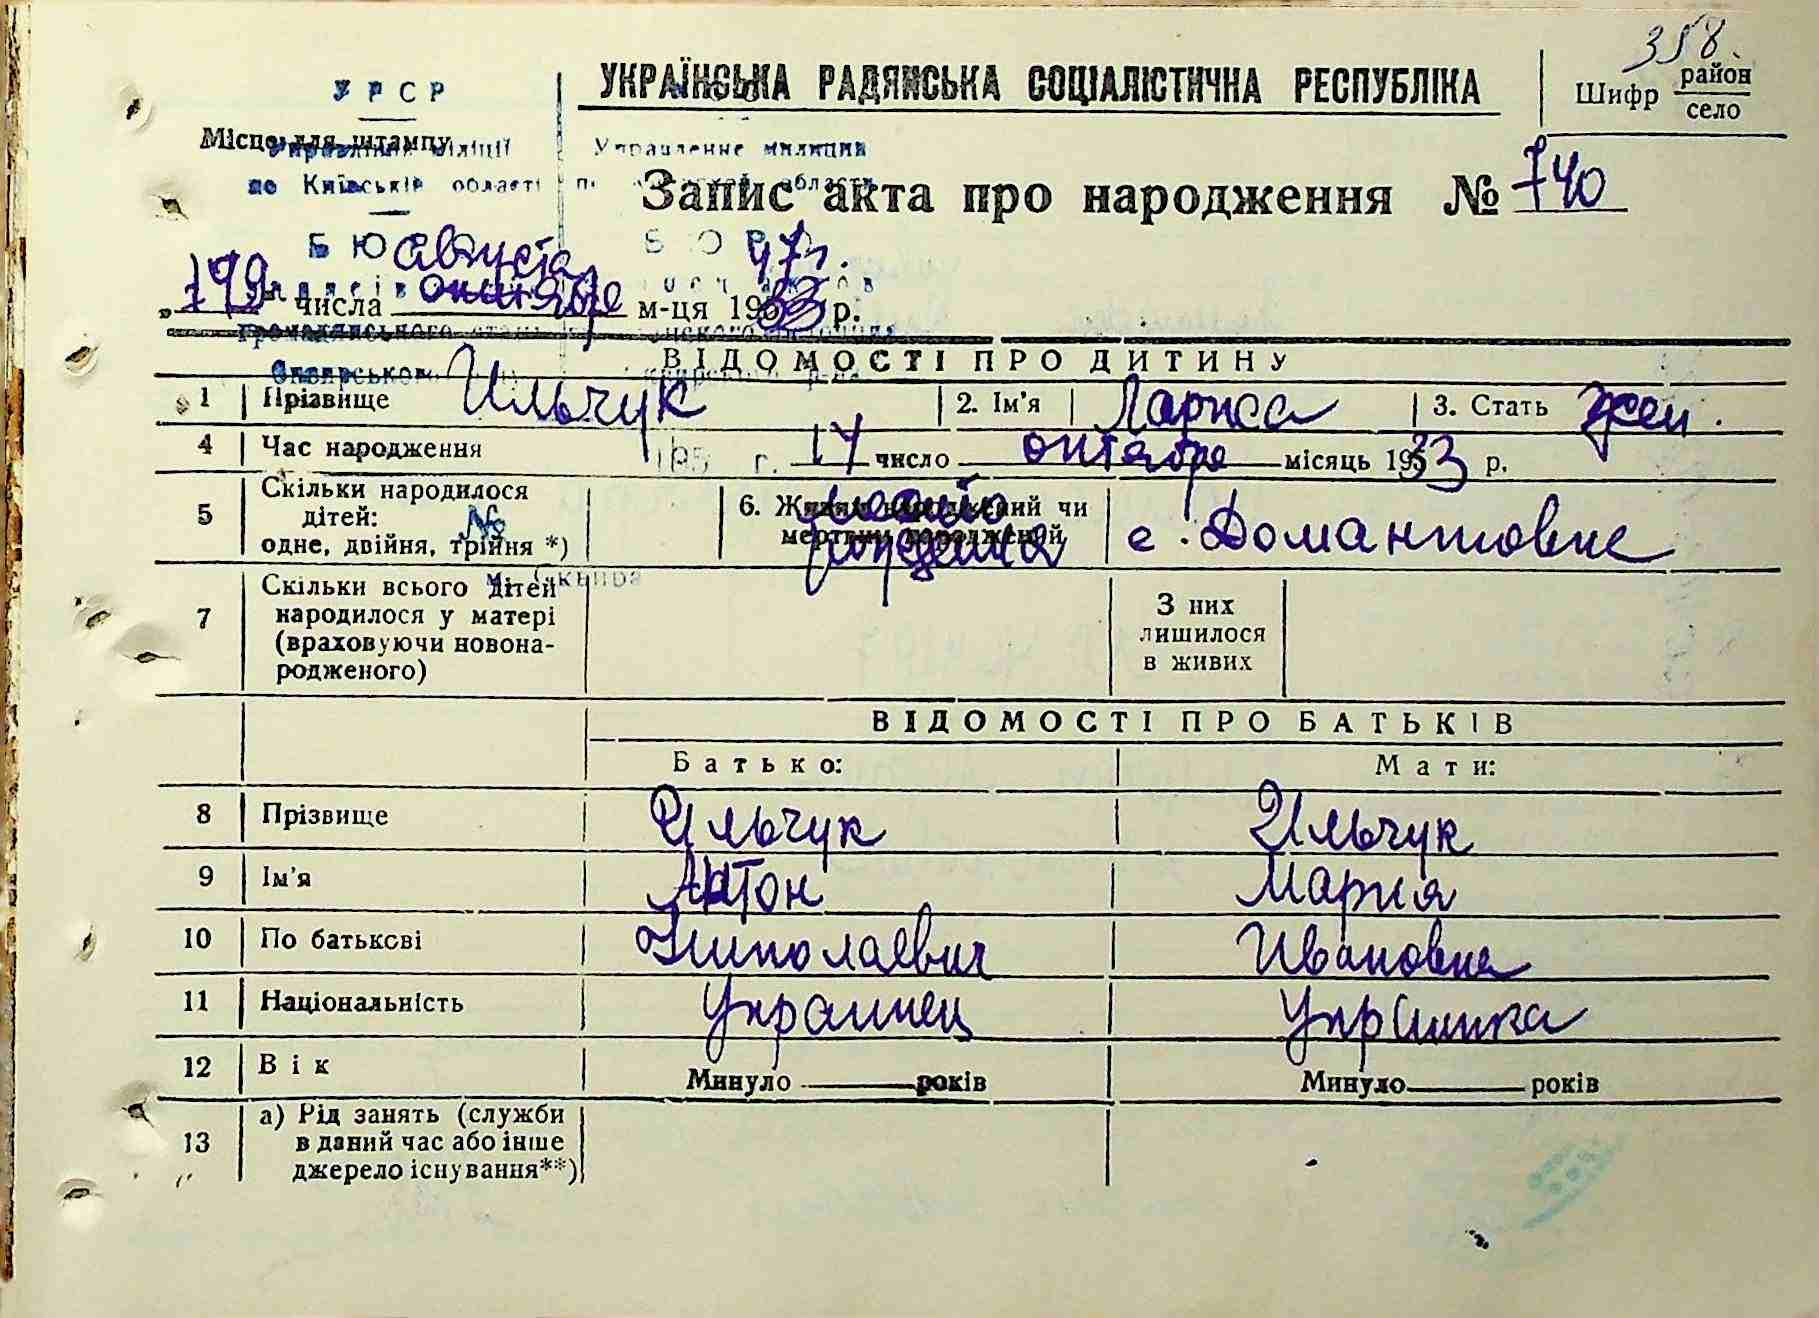 358.
УКРАЇНСЬКА РАДЯНСЬКА СОЦІАЛІСТИЧНА РЕСПУБЛІКА
Шифр район
село
УРСР
Місце для штампу
Управління міліції Управление милиции
по Київській області области
Запис акта про народження № 740
БЮ БЮРО
августа 47г.
„19" числа октября м-ця 1953 р.
громадянського
Сквирського
ВІДОМОСТІ ПРО ДИТИНУ
1 Прізвище Ильчук 2. Ім'я Лариса 3. Стать жен.
4 Час народження 195 г. 17 число октября місяць 1933 р.
5 Скільки народилося дітей: одне, двійня, трійня *) №
6. Живим народжений чи мертвим народжений место рождения с. Домантовке
м. Сквира
7 Скільки всього дітей народилося у матері (враховуючи новонародженого)
З них лишилося в живих
ВІДОМОСТІ ПРО БАТЬКІВ
Батько: Мати:
8 Прізвище Ильчук Ильчук
9 Ім'я Антон Мария
10 По батькові Николаевич Ивановна
11 Національність Украинец Украинка
12 Вік Минуло років Минуло років
13 а) Рід занять (служби в даний час або інше джерело існування**)